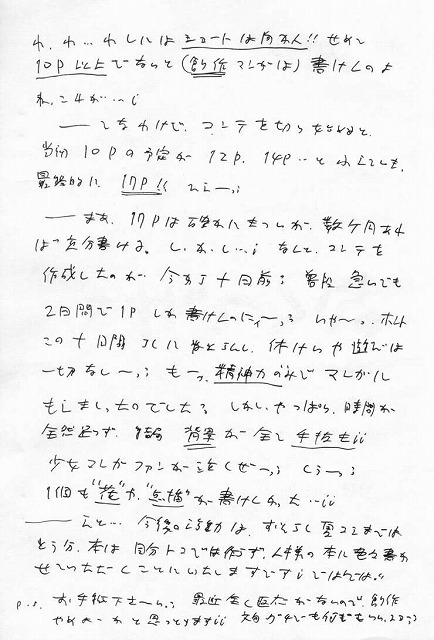 わ、わ…わしにはショートは向かん!! せめて
10P以上でないと(創作マンガは)書けんのよ
ね、これが…¡
――てなわけで、コンテを切り始めると、
当初10Pの予定が12P、14P…と
最終的に 17P!!
――まあ、17Pは確かにきついが、数ヶ月あれ
ば充分書ける。しかし…¡ なんと、コンテを
作成したのが 今から十日前 普段 急いでも
2日間で1P しか書けんのにィ〜 いや〜 ホント
この十日間
一切なし〜 もー、精神力のみでマンガに
しかし、やっぱり、時間が
全然足らず、結局 背景が全て手抜き¡¡
少女マンガファンが泣くぜ〜 くぅ〜
1個も"花"や"点描"が書けなかった…¡¡
――えと… 今後の活動は、おそらく夏コミまでは
とう分、本は自分トコでは作らず、人様の本に色々書か
せていただくことにいたしますです¡ ではでは
P.S. お手紙下さーい 最近全く反応がないので、創作
やめよーかと思っとります¡¡